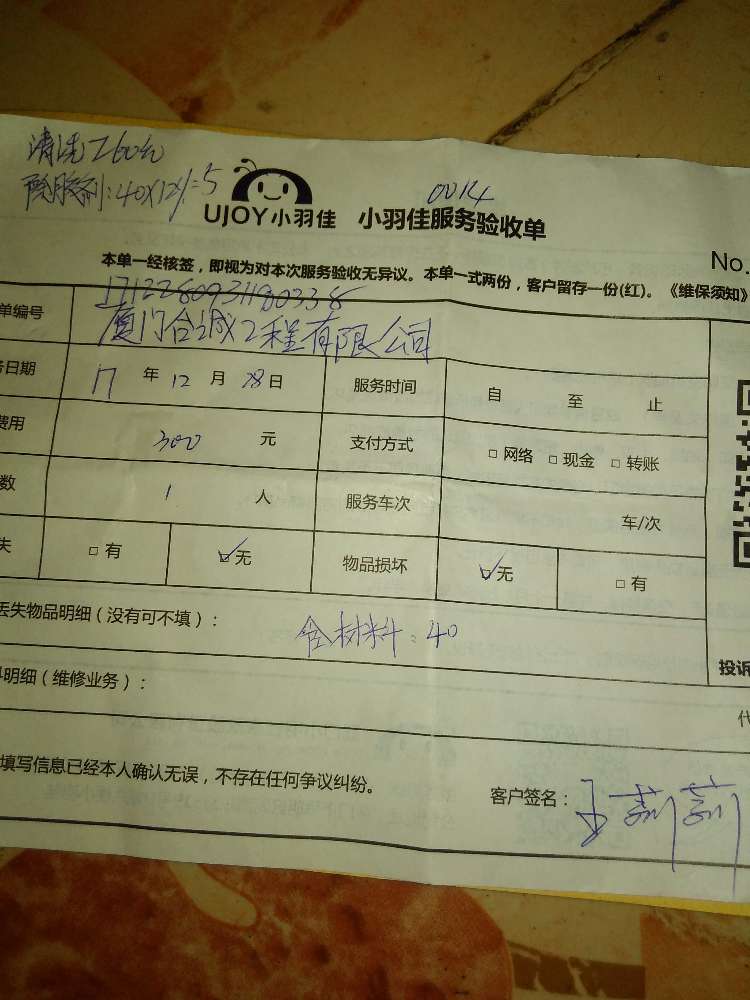 清洗工60元
除胶剂:40×12%=5
0014
UJOY小羽佳 小羽佳服务验收单
No.
本单一经核签，即视为对本次服务验收无异议。本单一式两份，客户留存一份(红)。《维保须知》
单编号 厦门合诚工程有限公司
务日期 17 年 12 月 28 日 服务时间 自 至 止
费用 300 元 支付方式 □ 网络 □ 现金 □ 转账
数 1 人 服务车次 车/次
失 □ 有 ☑ 无 物品损坏 ☑ 无 □ 有
丢失物品明细（没有可不填）： 含材料:40
投诉
料明细（维修业务）：
代
填写信息已经本人确认无误，不存在任何争议纠纷。
客户签名：王莉莉